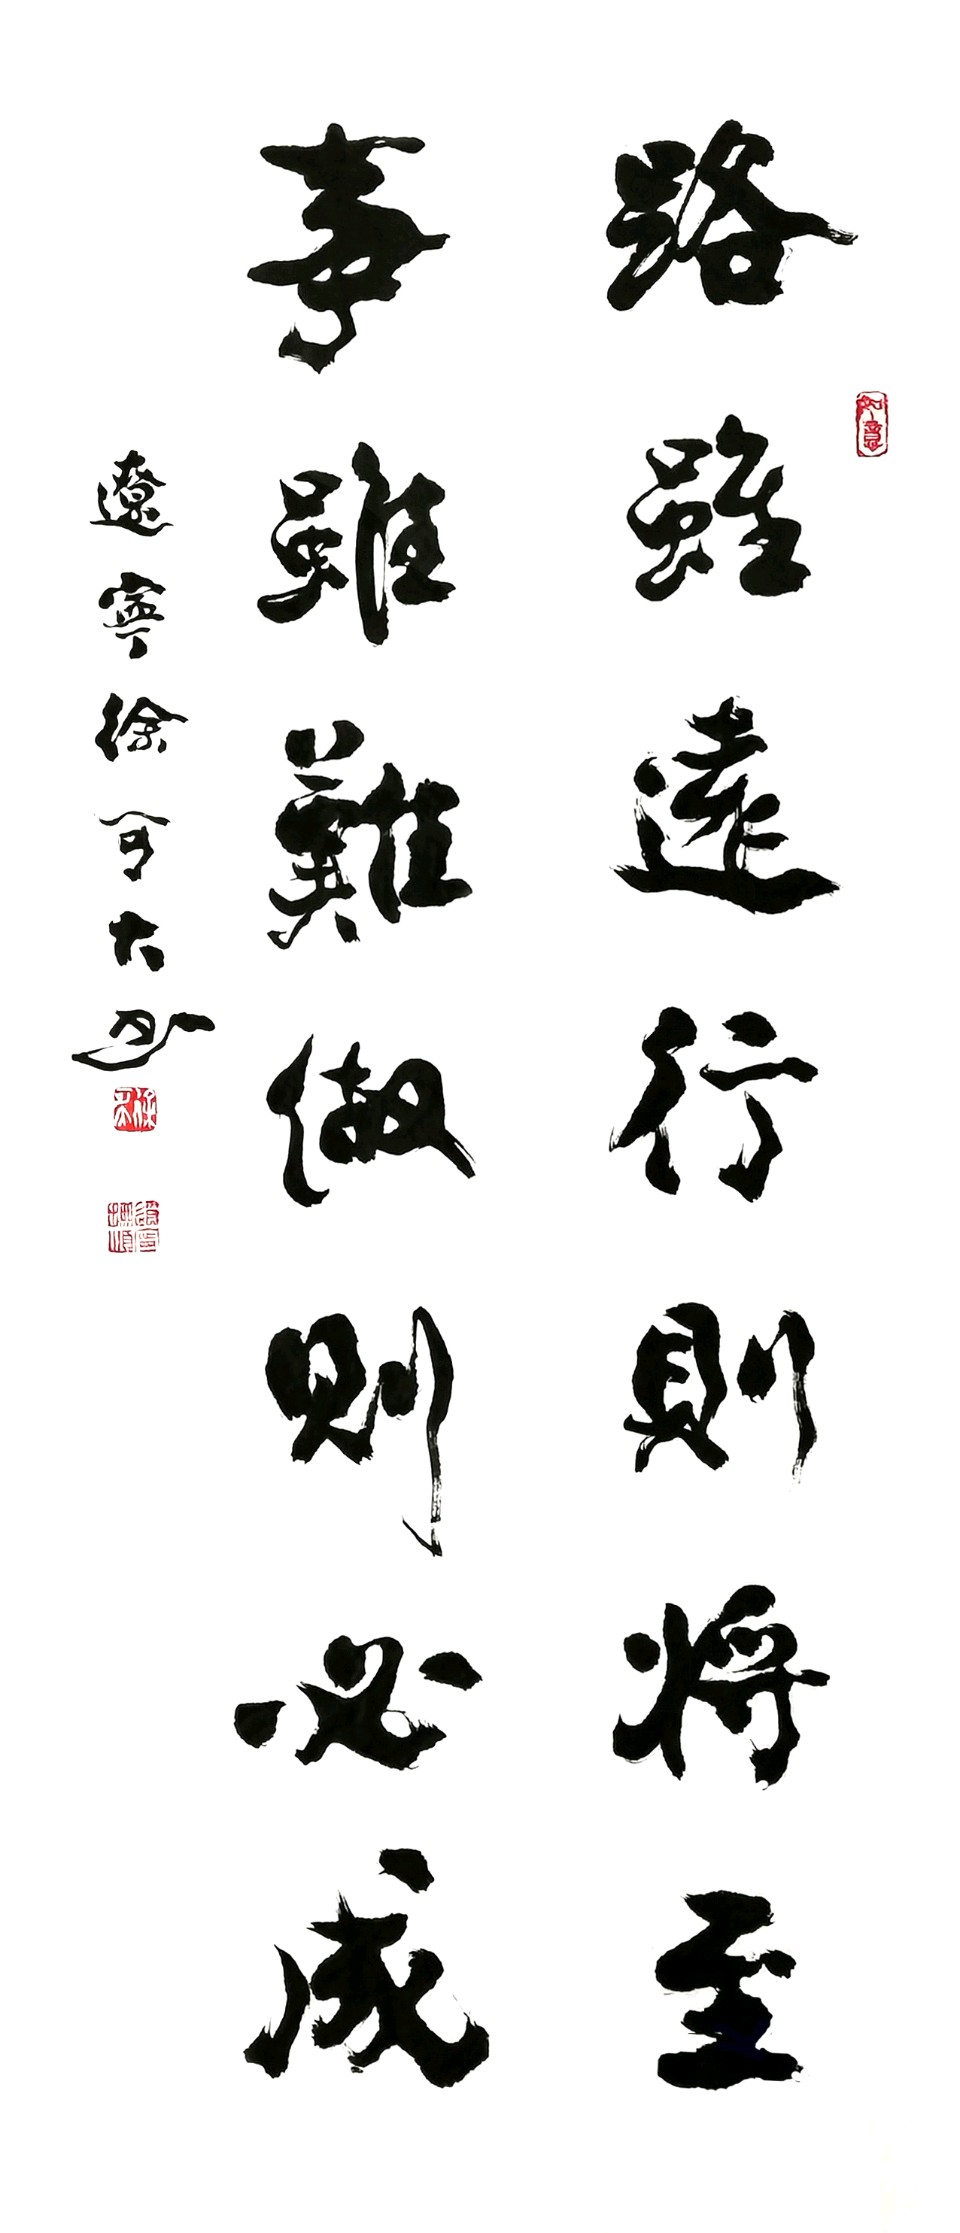 路雖遠行則將至
事雖難做則必成
遼寧徐可大書
如意